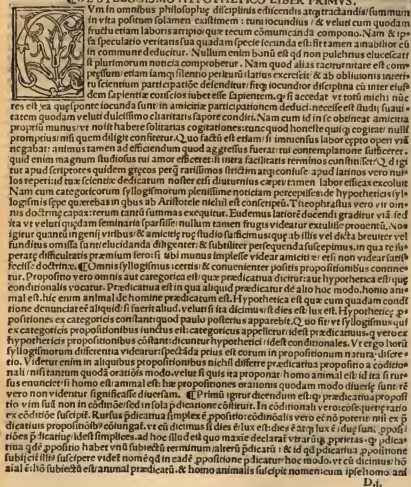 Vm in omnibus philosophię disciplinis ediscendis atq; tractandis summum
in vita positum solamen existimem : tum iocundius / & veluti cum quodam
fructu etiam laboris arripio quæ tecum cōmunicanda compono. Nam & ipsa
speculatio veritatis sua quadam specie iocunda est: fit tamen annabilior cū
in commune deducitur. Nullum enim bonū est qd non pulchrius elucescat: si
plurimorum noticia comprobetur. Nam quod alias taciturnitate est com
pressum: etiam iamq; silentio periturū latius exercetur & ab obliuionis interi
tu scientium participatiōe defenditur: Fitq; iocundior disciplina cū inter eius
dem sapientiæ conscios iubet esse sapientem. q si accedat vt totū michi nūc
res est ea quę sponte iocunda sunt: in amicitiæ participationem deduci: necesse est studij suaui
tatem quodam veluti dulcissimo charitatis sapore condiri. Nam cum id in se obtineat amicitia
proprij munus: vt nolit habere solitarias cogitationes: tunc quod honeste quisq; cogitat: nulli
promptius: nisi quem diligit confitetur. Quo factū est etiam: si inniensus labor cępto operi viā
negabat: animus tamen ad efficiendum quod aggressus fuerat: tui contemplatione sufficeret.
quid enim magnum studiosus tui amor efficeret: si intra facilitatis terminos constitisset? Qd igi
tur apud scriptores quidem gręcos perq̄ rarissimos strictim atq; confuse: apud latinos vero nul
los reperi: id tuæ scientiæ dedicatum noster etsi diuturnus cœptri tamen labor efficax excoluit.
Nam cum categoricorum syllogismorum plenissime noticiam percepisses: de hypotheticis syl
logismis sępe quærebas in qbus ab Aristotele nichil est conscriptū. Theophrastus vero vir om
nis doctrinę capax: rerum tantū summas exequitur. Eudemus latiorē docendi graditur viā: sed
ita vt veluti quædam seminaria sparsisse: nullum tamen frugis videatur extulisse prouentū. Nos
igitur quantū ingenij viribus / & amicitiæ tuę studio sufficimus: quæ ab illis vel dicta breuiter vel
funditus omissa sunt: elucidanda diligenter: & subtiliter persequenda suscepimus. in qua re su
peratę difficultatis præmium fero: si tibi munus implesse videar amicitiæ: etsi non videar satis
fecisse doctrinę. ¶ Omnis syllogismus: certis / & conuenienter positis propositionibus contine
tur. Propositio vero omnis aut categorica est: quæ prædicatiua dicitur: aut hypothetica est: quę
conditionalis vocatur. Prædicatiua est in qua aliquid prædicatur de alio hoc modo. homo ani
mal est. hic enim animal de homine prædicatum est. Hypothetica est quæ cum quadam condi
tione denunciat eē aliquid: si fuerit aliud. veluti si ita dicimus: si dies est: lux est. Hypotheticę p
positiones ex categoricis constant: quod paulo posterius apparebit. Quo fit: vt syllogismus qui
ex categoricis propositionibus iunctus est: categoricus appelletur: idest prædicatiuus. q vero ex
hypotheticis propositionibus cōstat: dicuntur hypothetici idest conditionales. Vt ergo horū
syllogismorum differentia videatur: spectāda prius est eorum in propositionum natura discre
tio. Videtur enim in aliquibus propositionibus nichil differre prædicatiua propositio a cōditio
nali / nisi tantum quodā orationis modo. veluti si quis ita proponat: homo animal est: id ita si rur
sus enunciet: si homo est: animal est: hæ propositiones orationis quodam modo diuersę sunt: rē
vero non videntur significasse diuersam. ¶ Primū igitur dicendum est: q prædicatiua propo
sitio vim suā non in cōditiōe: sed in sola pdicatione cōstituit. In cōditionali vero: cōsequētię ratio
ex cōditiōe suscipit. Rursus prædicatiua simplex ē ppositio: cōditiōalis vero eē nō poterit nisi ex p
dicatiuis propositiōib9 cōiungat. vt cū dicimus si dies ē lux est: dies ē atq; lux ē: duę sunt pposi
tiōes pdicatiuę: idest simplices. ad hoc illud est quo maxie declaraf vtrarūq; pprietas. q pdica
tiua qdē ppositio habet vnū subiectū terminum / alterū pdicatū: & id qd pdicatiua ppositione
subijcif illi⁹ suscipere videt nomē qd in eadē ppositione pdicatur: hoc modo. vt cū dicimus: hō
aīal ē: hō subiectū est: animal prædicatū. & homo animalis suscipit nomen: cum ipse homo ani
D.i.